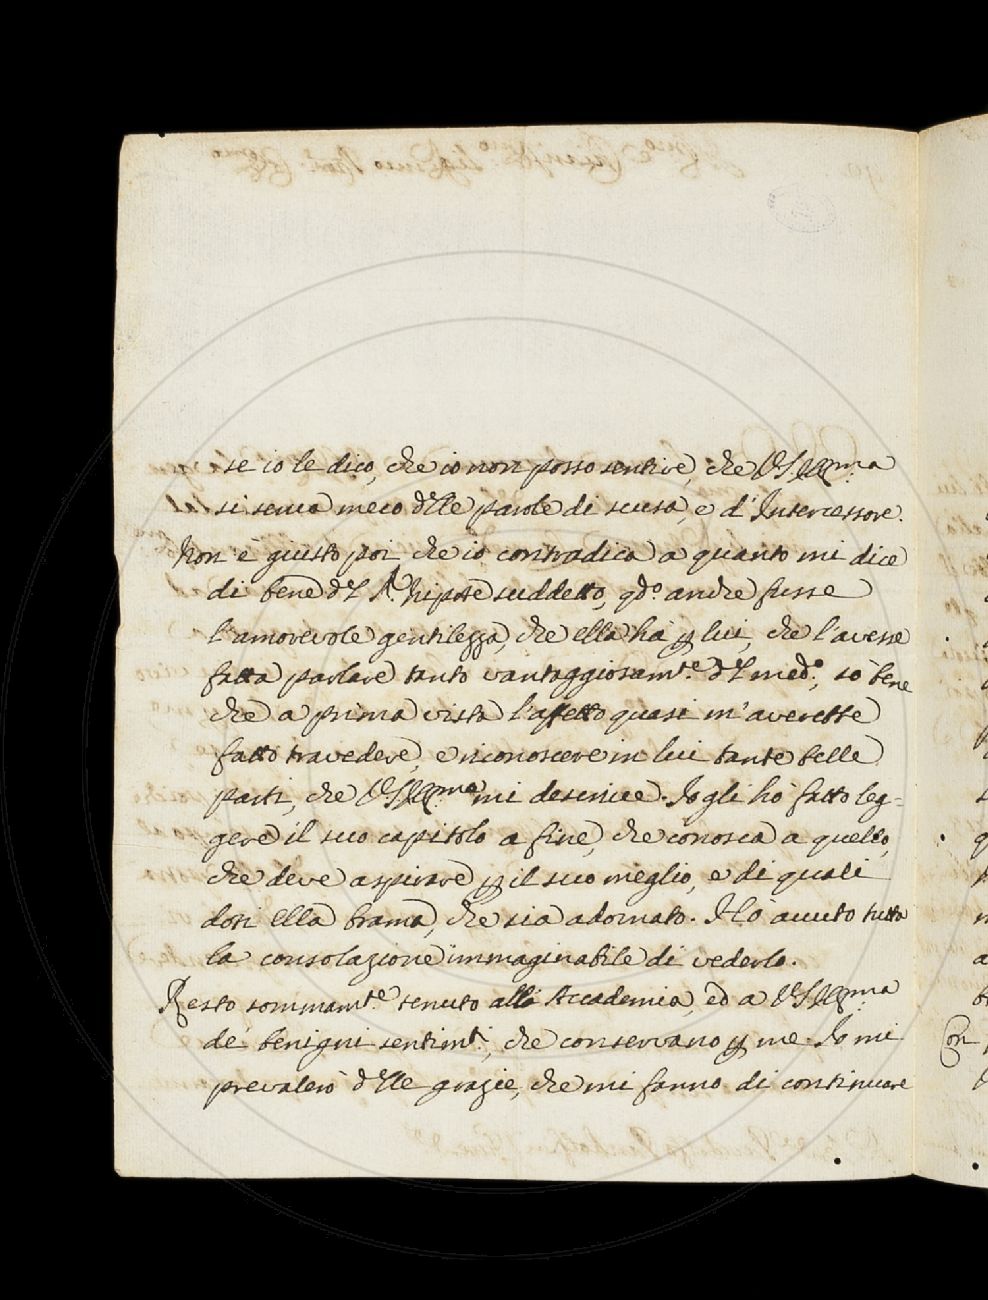 se io le dico, che io non posso sentire, che V.S. Illma
si serva meco delle parole di scusa, e d'Intercessore.
Non è giusto poi che io contradica a quanto mi dice
di bene del Sr. Nipote suddetto, qdo. anche fusse
l'amorevole gentilezza, che ella ha per lui, che l'avesse
fatta parlare tanto vantaggiosamte. del medo., so bene
che a prima vista l'affetto quasi m'averebbe
fatto travedere, e riconoscere in lui tante belle
parti, che V.S. Illma mi descrive. Io gli hò fatto leg=
gere il suo capitolo a fine, che conosca a quello,
che deve aspirare per il suo meglio, e di quali
doti ella brama, che sia adornato. Hò avuto tutta
la consolazione immaginabile di vederlo.
Resto sommamte. tenuto alla Accademia, ed a V.S. Illma
de benigni sentimti., che conservano per me. Io mi
prevalerò delle grazie, che mi fanno di continuare
Con